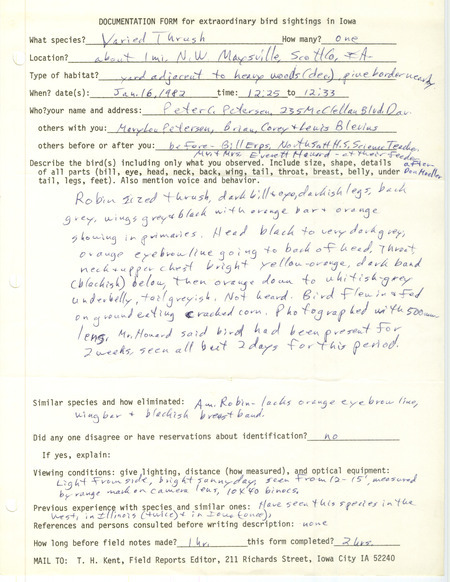 DOCUMENTATION FORM for extraordinary bird sightings in Iowa
What species? Varied Thrush How many? one
Location? about 1 mi. N.W Maysville, Scott Co, IA.
Type of habitat? yard adjacent to heavy woods (dec), pine border nearby
When? date(s): Jan. 16, 1982 time: 12:25 to 12:33
Who? your name and address: Peter C. Petersen, 235 McClellan Blvd. Dav.
others with you: Mary Lou Petersen, Brian, Corey + Lewis Blevins
others before or after you: before - Bill Erps, North Scott H.S. Science Teacher
Mr. + Mrs. Everett Howard - at their feeder
Describe the bird(s) including only what you observed. Include size, shape, details after-
of all parts (bill, eye, head, neck, back, wing, tail, throat, breast, belly, under Don Moeller
tail, legs, feet). Also mention voice and behavior.
Robin sized thrush, dark bill + eye, darkish legs, back
grey, wings grey + black with orange bar + orange
showing in primaries. Head black to very dark grey,
orange eyebrow line going to back of head, throat,
neck + upper chest bright yellow-orange, dark band
(blackish) below, then orange down to whitish-grey
underbelly, tail greyish. Not heard. Bird flew in + fed
on ground eating cracked corn. Photographed with 500mm
lens. Mr. Howard said bird had been present for
2 weeks, seen all but 2 days for this period.
Similar species and how eliminated: Am. Robin - lacks orange eyebrow line,
wingbar + blackish breast band.
Did any one disagree or have reservations about identification? no
If yes, explain:
Viewing conditions: give lighting, distance (how measured), and optical equipment:
Light from side, bright sunny day, seen from 12-15', measured
by range mark on camera lens, 10x40 binocs.
Previous experience with species and similar ones: Have seen this species in the
West, in Illinois (twice) + in Iowa (once).
References and persons consulted before writing description: none
How long before field notes made? 1 hr. this form completed? 2 hrs.
MAIL TO: T. H. Kent, Field Reports Editor, 211 Richards Street, Iowa City IA 52240